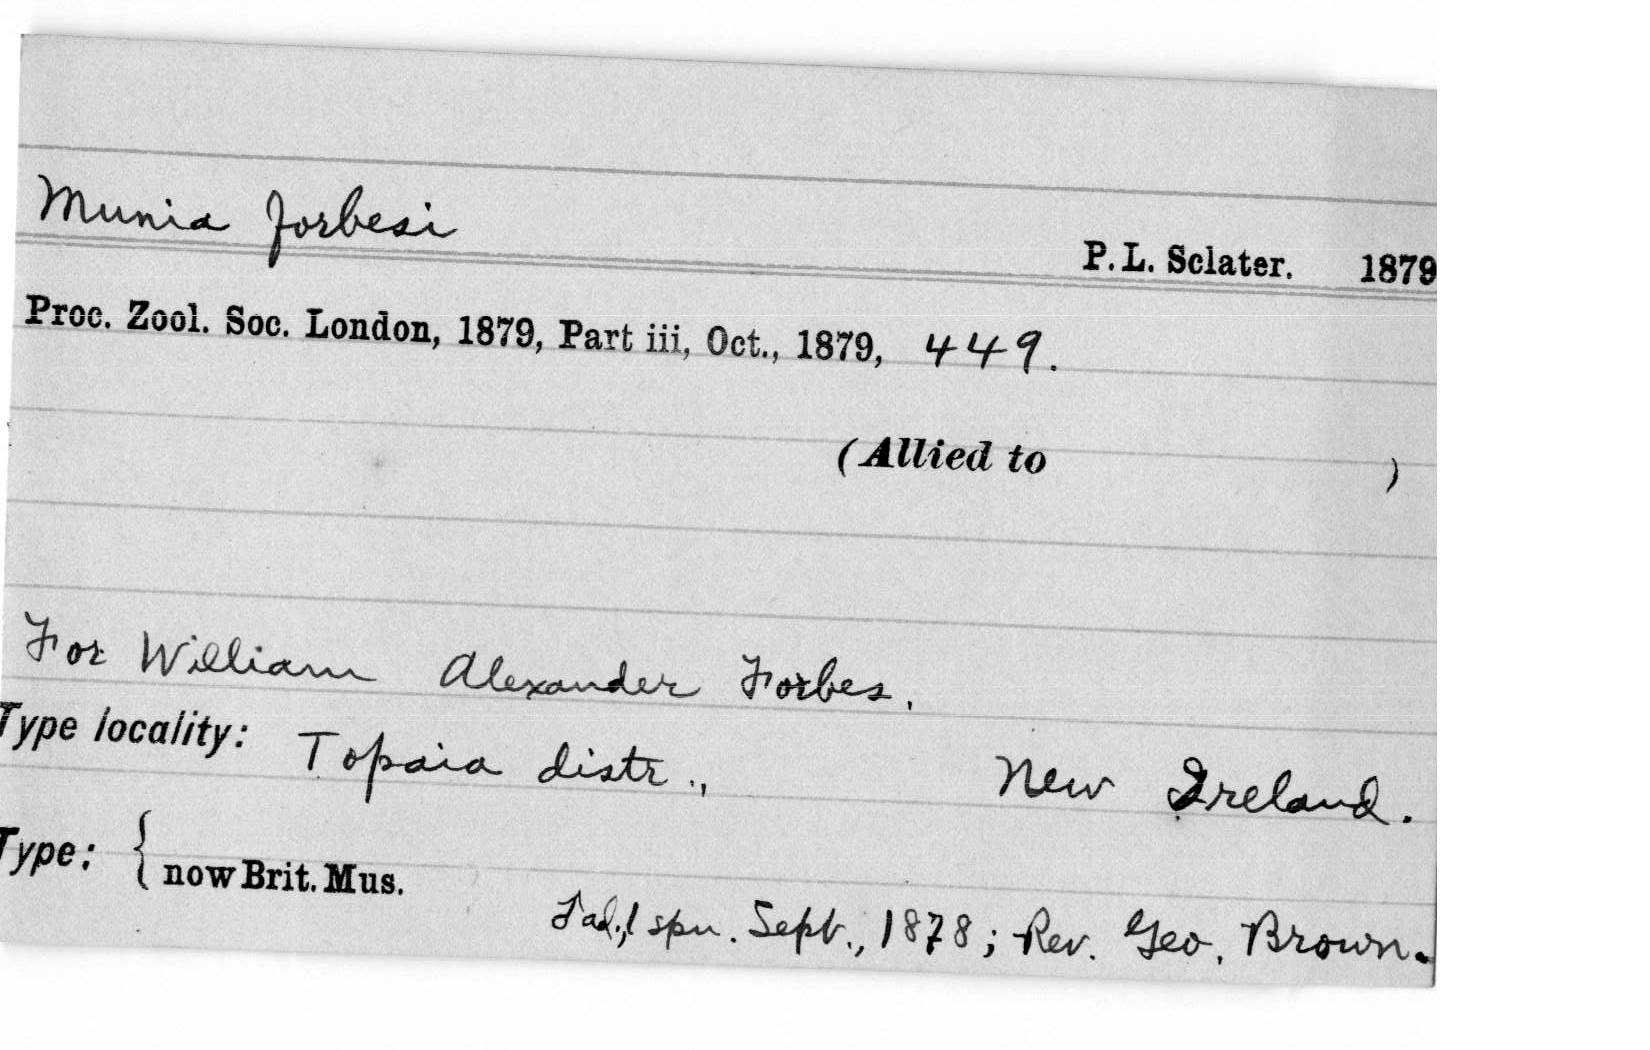 Munia forbesi
P. L. Sclater. 1879
Proc. Zool. Soc. London, 1879, Part iii, Oct., 1879, 449.
(Allied to )
For William Alexander Forbes.
Type locality: Topaia distr., New Ireland.
Type: { now Brit. Mus.
ad., 1 spn. Sept., 1878; Rev. Geo. Brown.